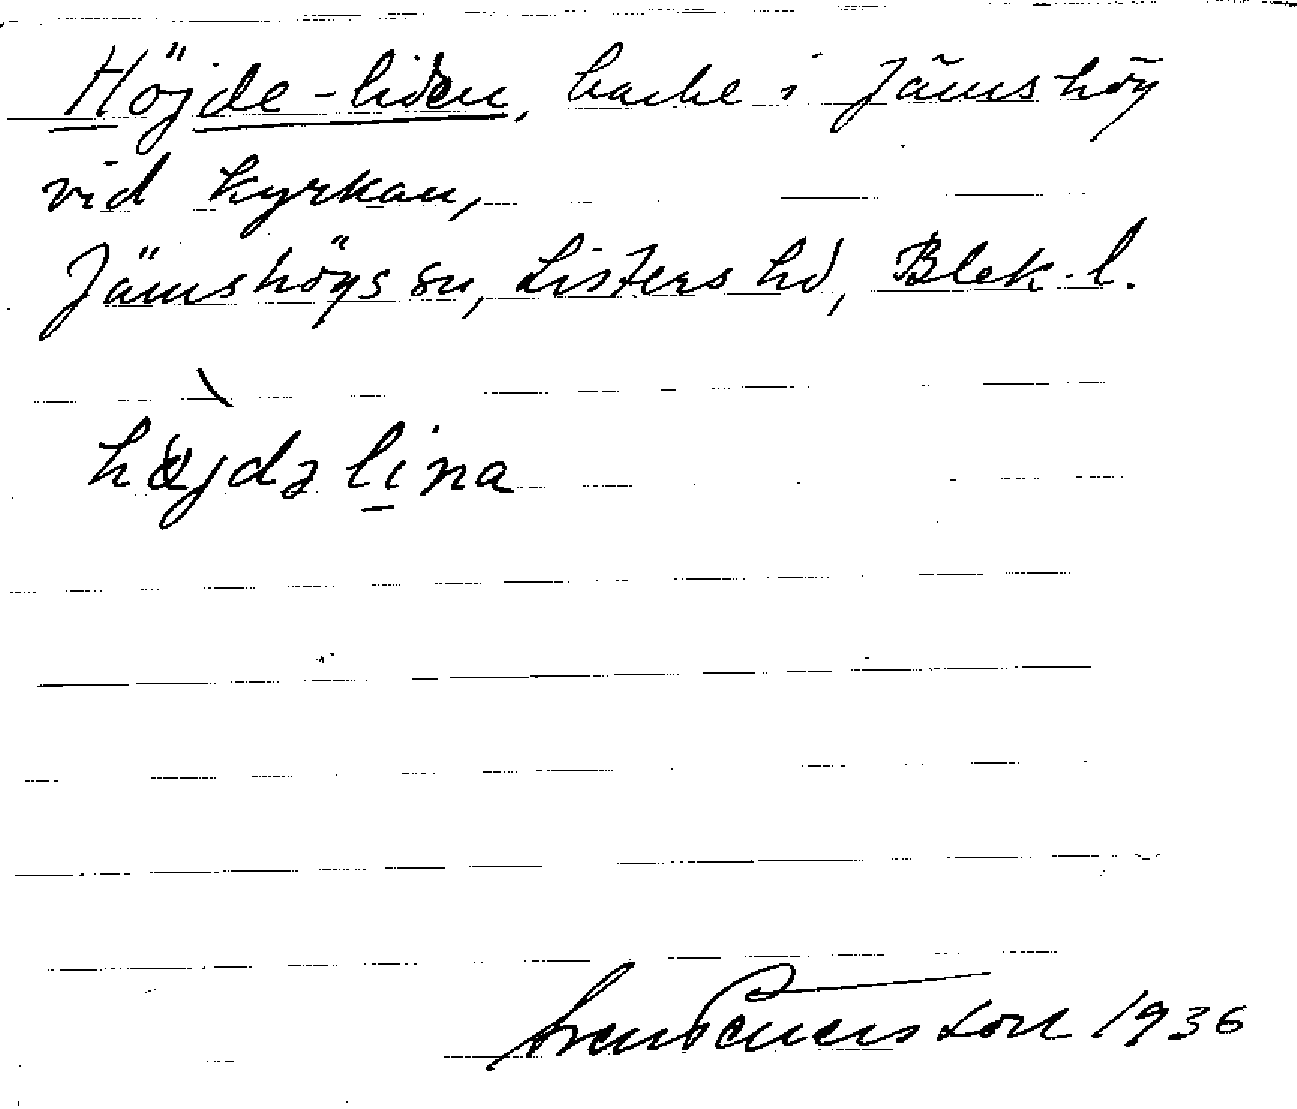 Höjde-liden, backe i Jämshög
vid kyrkan,
Jämshögs sn, Listers hd, Blek. l.
højdə lina
Sven Benson 1936